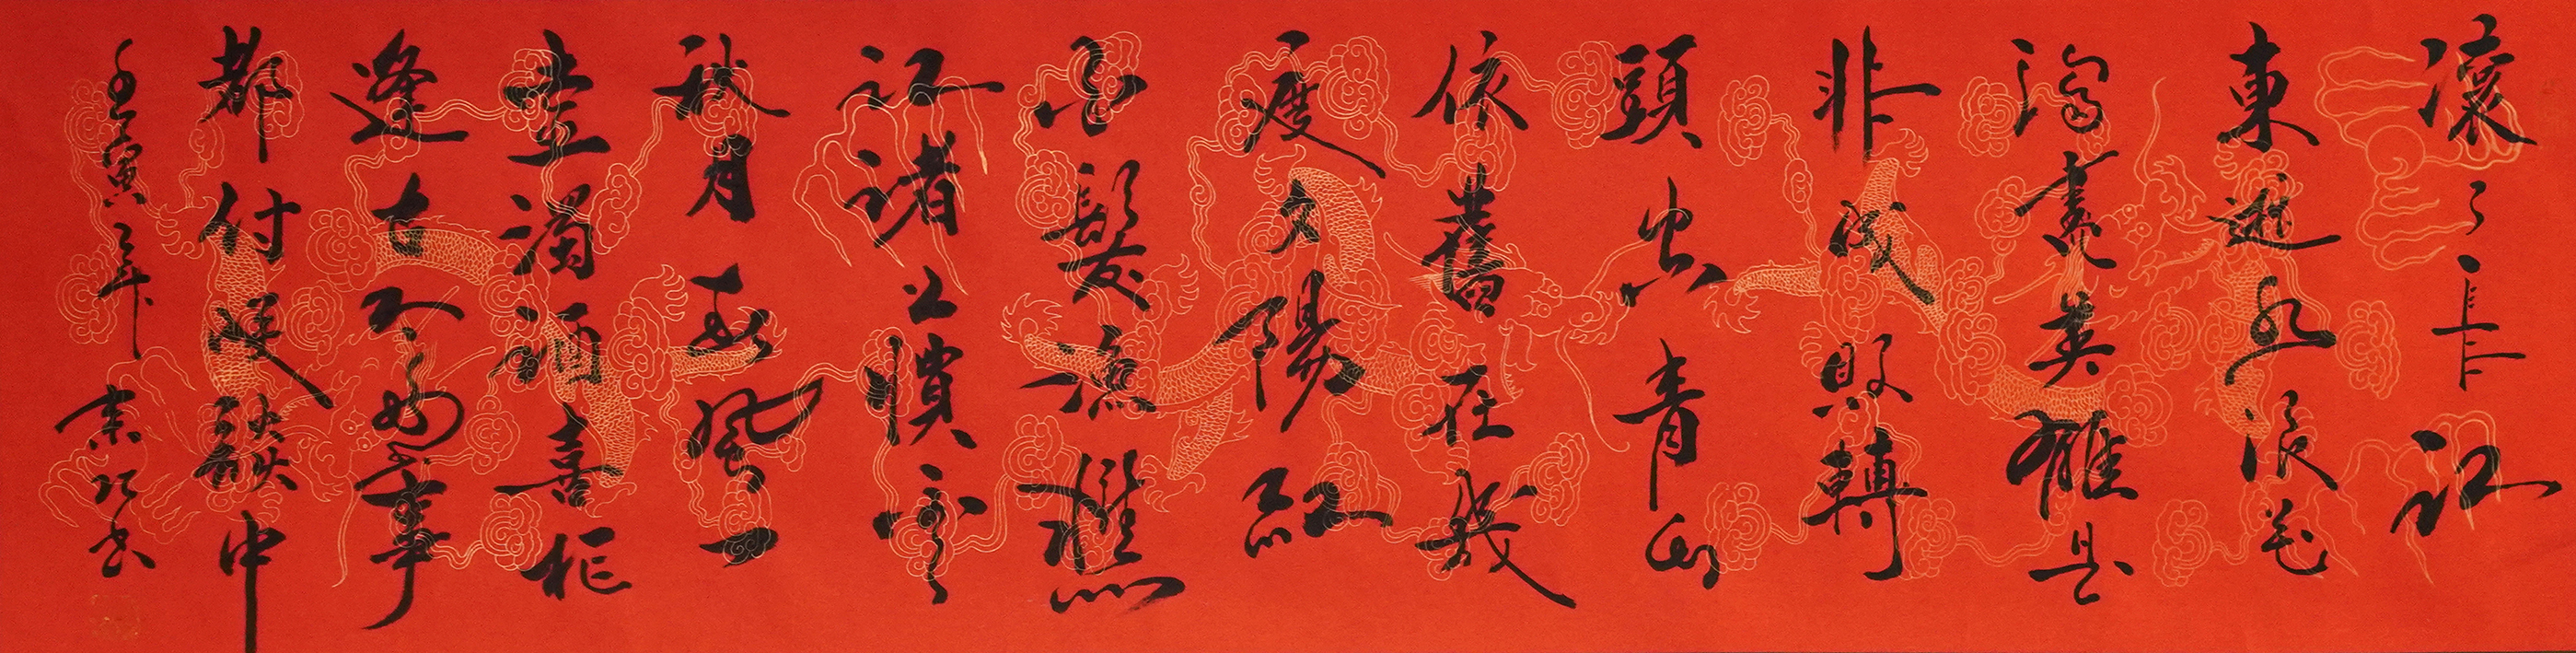 滾々長江
東逝水浪花
淘盡英雄是
非成敗轉
頭空青山
依舊在幾
度夕陽紅
白髮漁樵
江渚上慣看
秋月春風一
壺濁酒喜相
逢古今多少事
都付笑談中
壬寅年 書